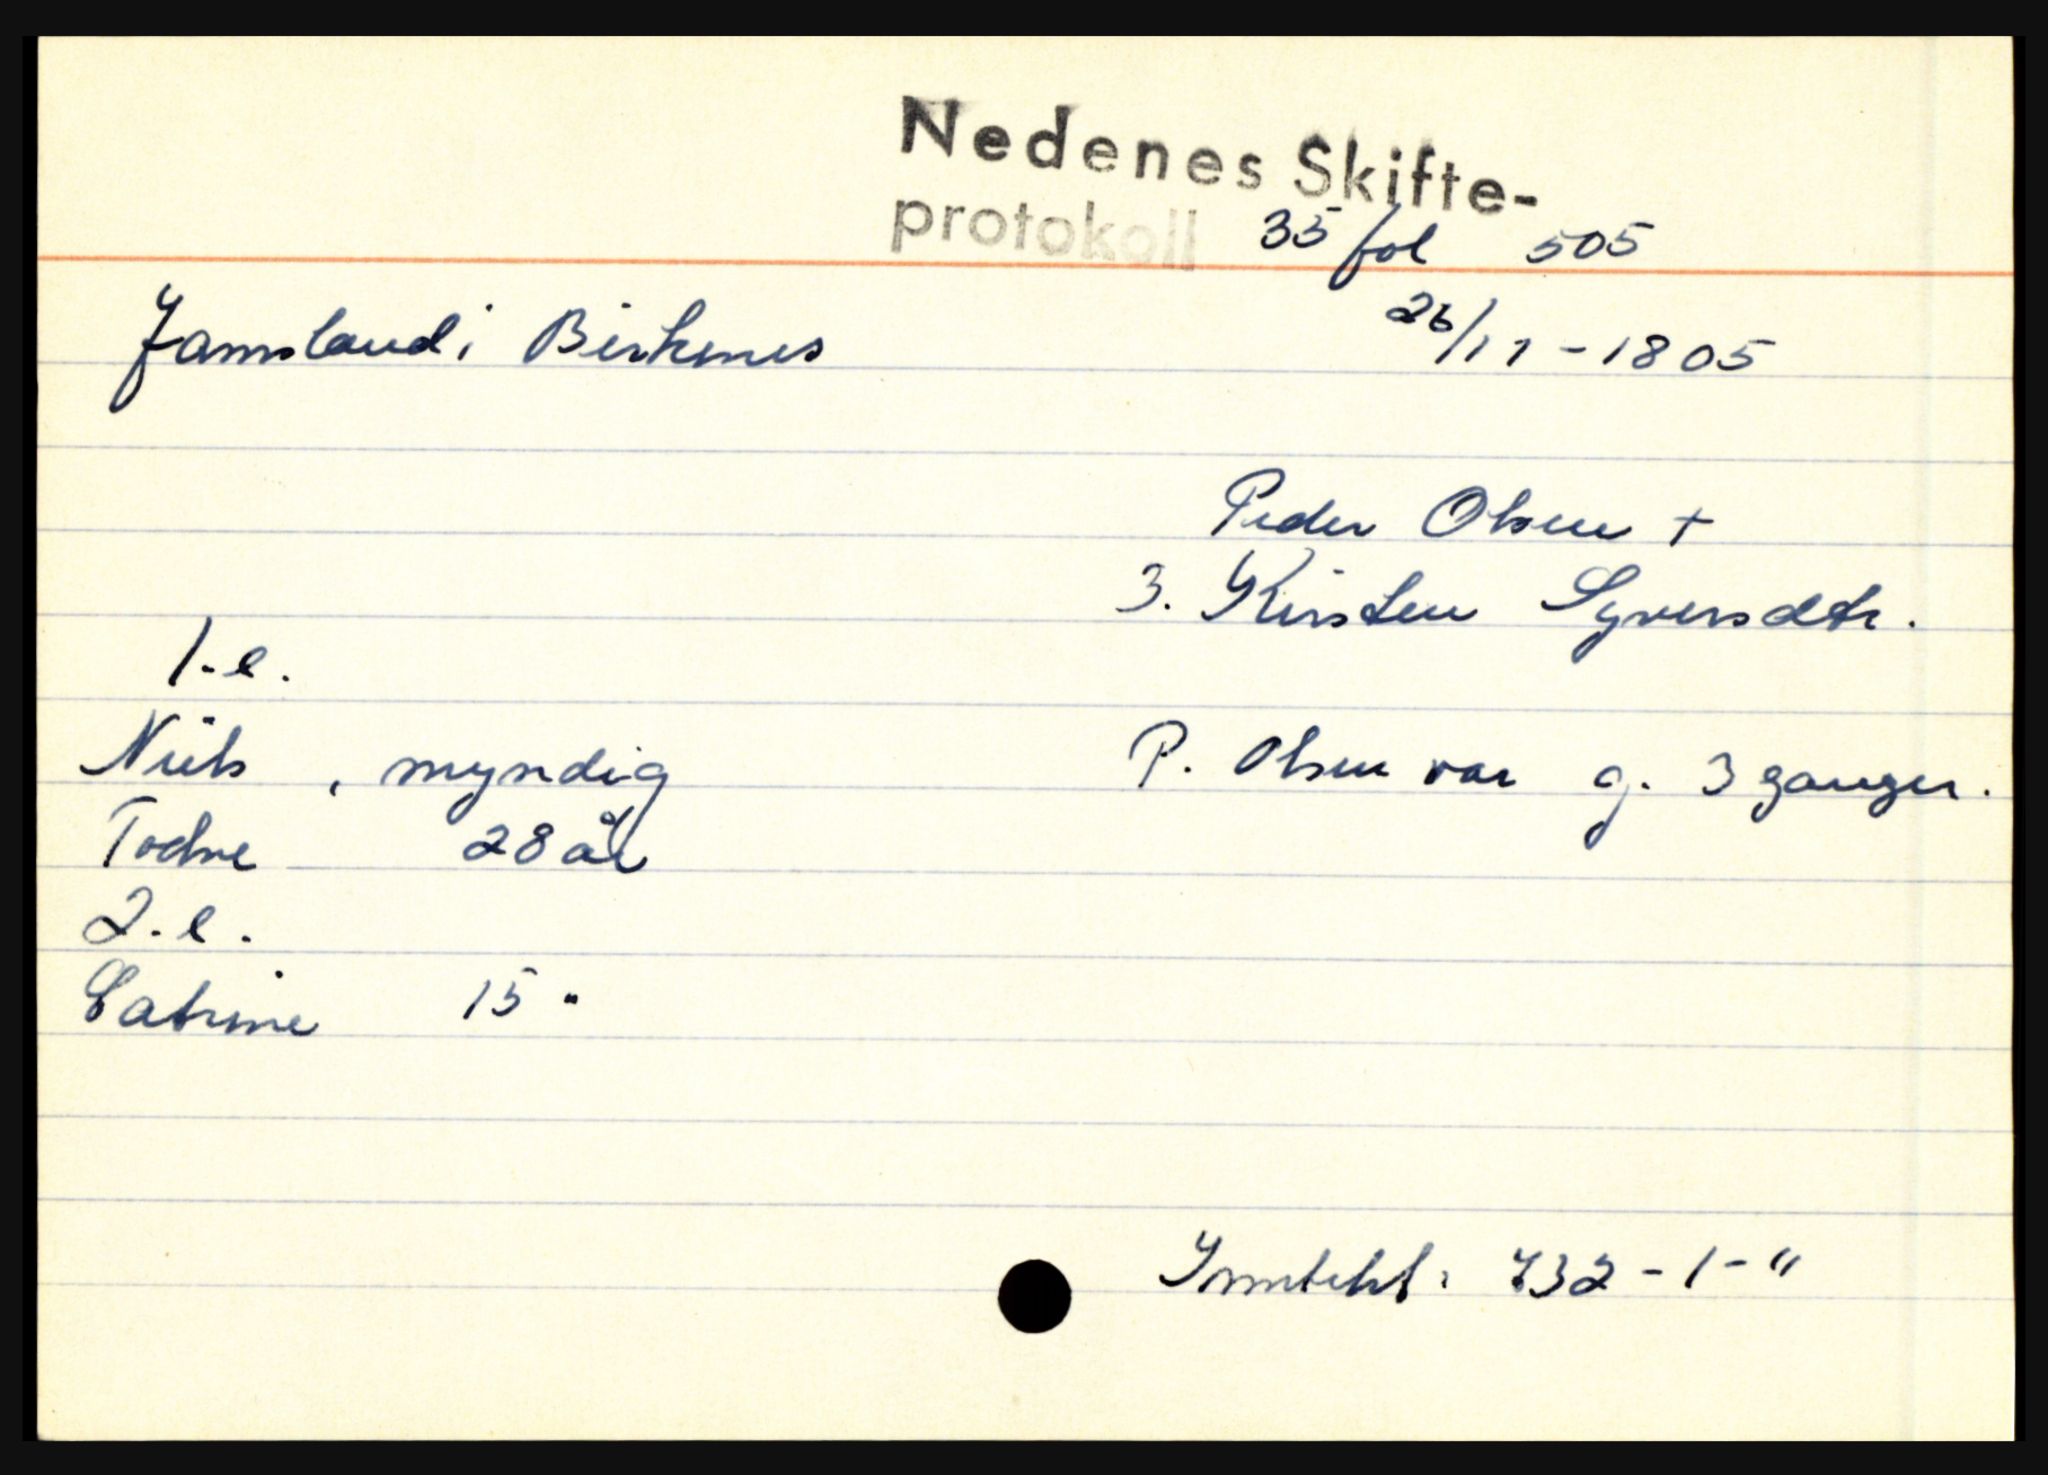 Nedenes Skifte-
protokoll 35 fol 505
26/11 - 1805
Jamsland i Birkenes
Peder Olsen +
3. Kirsten Syversdtr.
1. e.
Niels, myndig
P. Olsen var g. 3 ganger.
Todne 28 år
2. e.
Catrine 15 "
732 - 1 - "